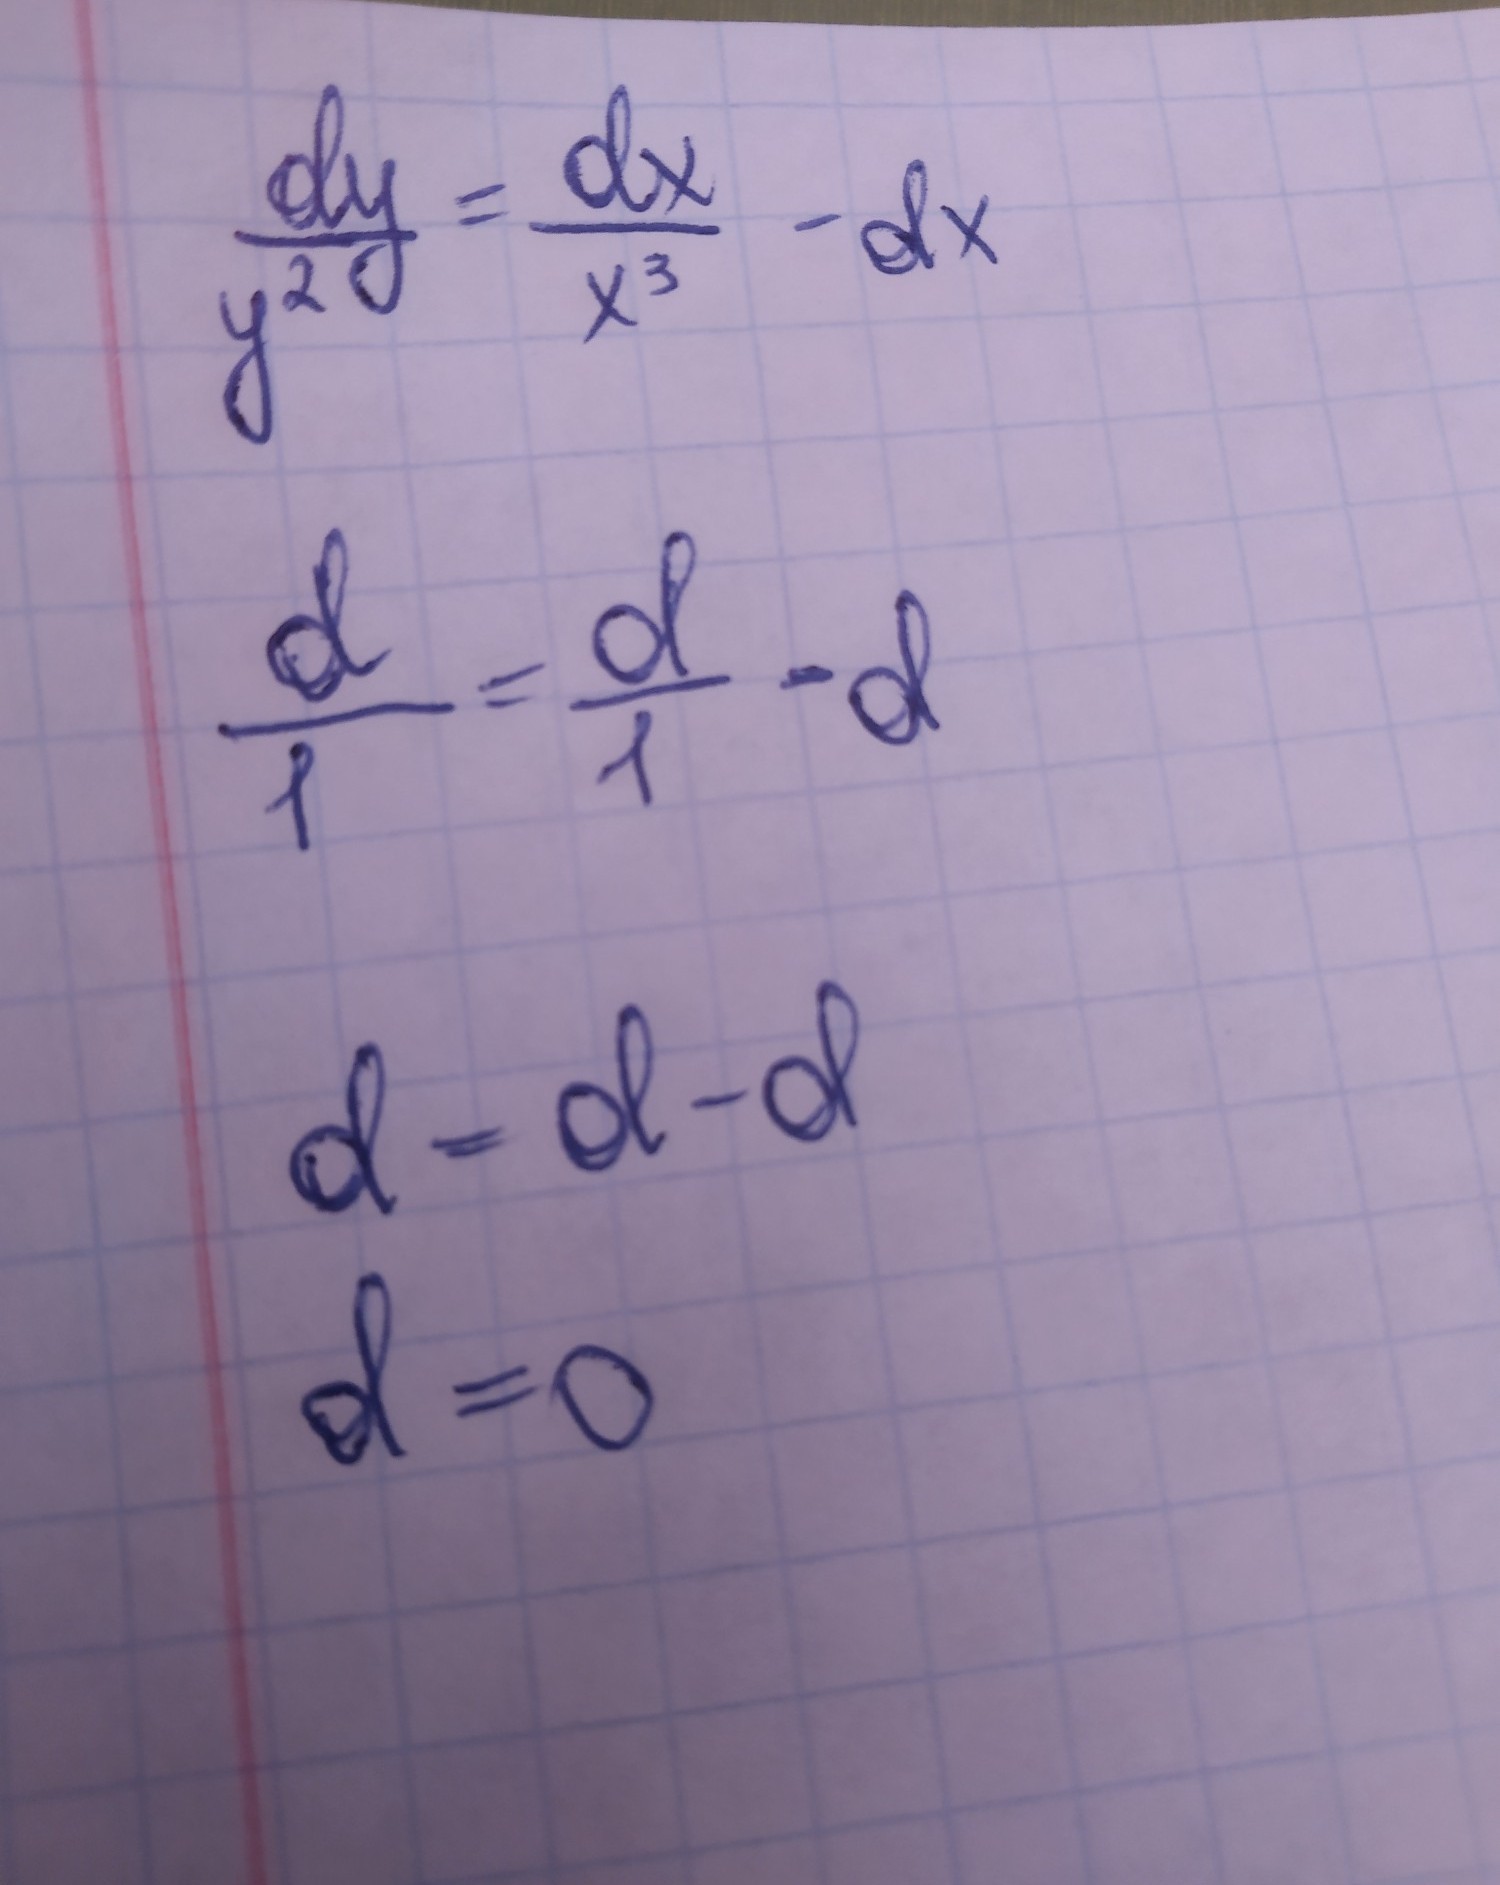 dy/y² = dx/x³ - dx
d/1 = d/1 - d
d = d - d
d = 0